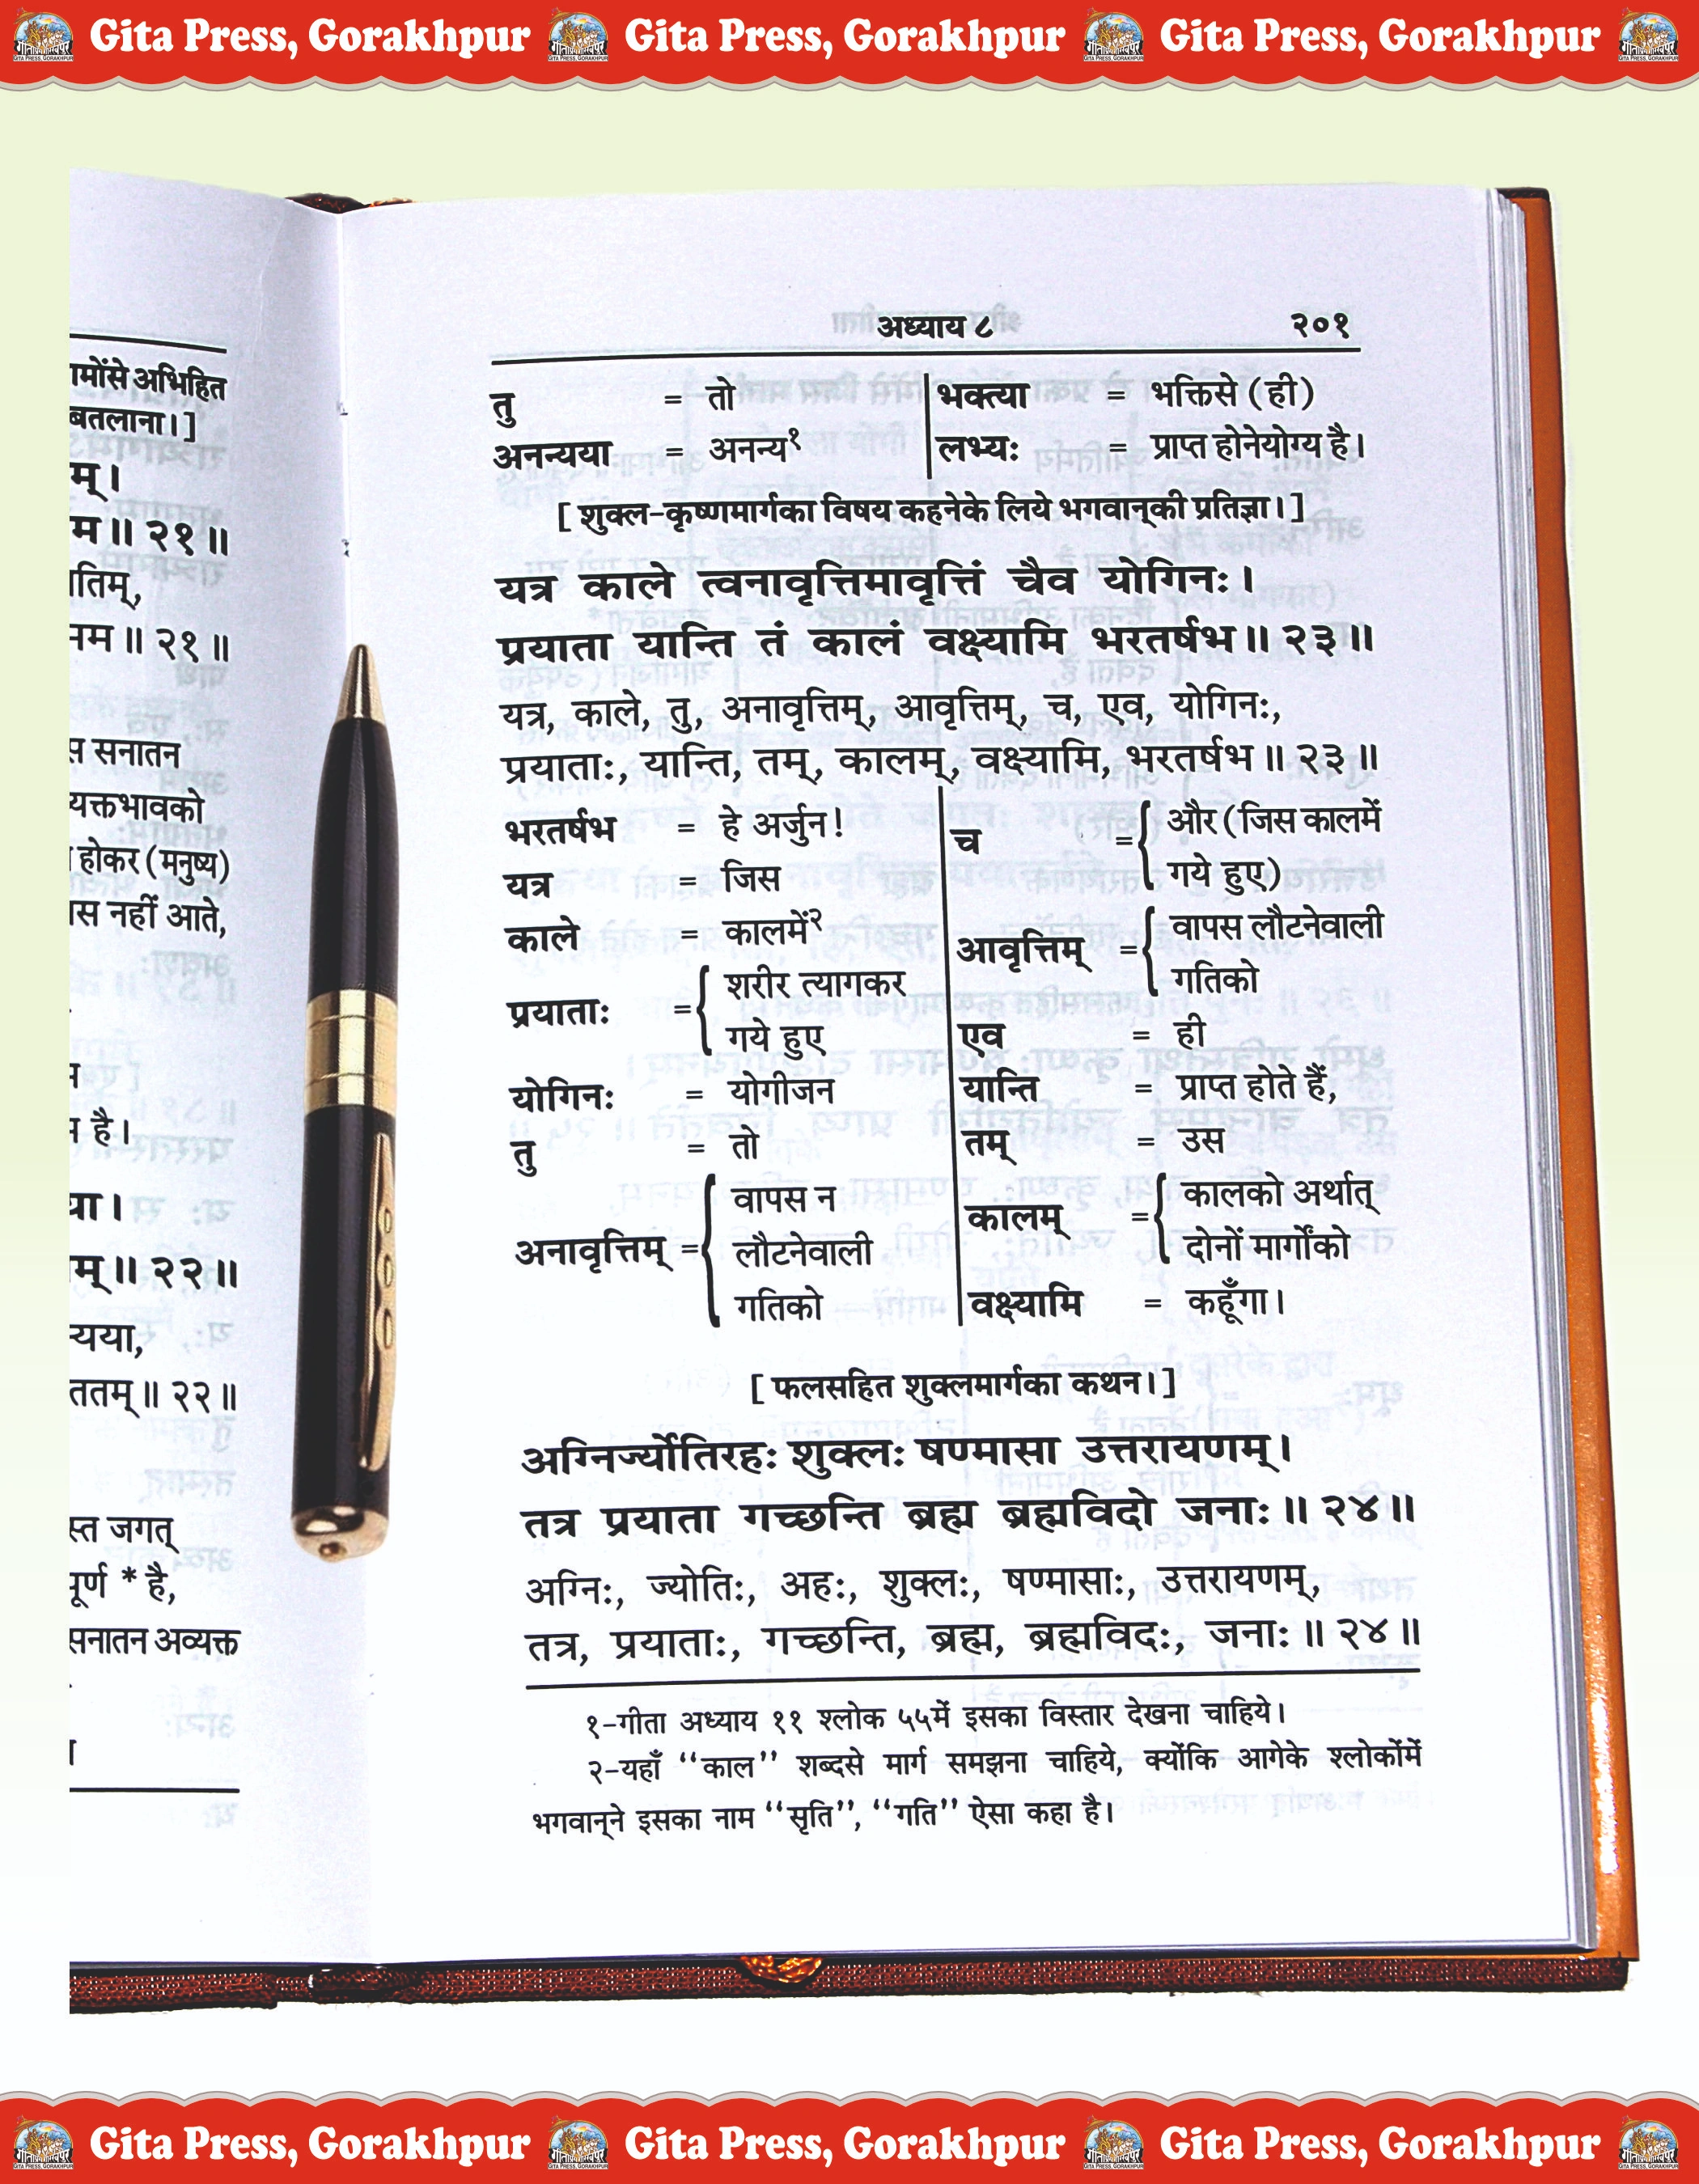 Gita Press, Gorakhpur Gita Press, Gorakhpur Gita Press, Gorakhpur
अध्याय ८ २०१
तु = तो भक्त्या = भक्तिसे (ही)
अनन्यया = अनन्य१ लभ्यः = प्राप्त होनेयोग्य है।
[ शुक्ल-कृष्णमार्गका विषय कहनेके लिये भगवान्‌की प्रतिज्ञा। ]
यत्र काले त्वनावृत्तिमावृत्तिं चैव योगिनः।
प्रयाता यान्ति तं कालं वक्ष्यामि भरतर्षभ॥ २३॥
यत्र, काले, तु, अनावृत्तिम्, आवृत्तिम्, च, एव, योगिनः,
प्रयाताः, यान्ति, तम्, कालम्, वक्ष्यामि, भरतर्षभ॥ २३॥
भरतर्षभ = हे अर्जुन!
यत्र = जिस
काले = कालमें२
प्रयाताः = शरीर त्यागकर
गये हुए
योगिनः = योगीजन
तु = तो
अनावृत्तिम् = वापस न
लौटनेवाली
गतिको
च = और (जिस कालमें
गये हुए)
आवृत्तिम् = वापस लौटनेवाली
गतिको
एव = ही
यान्ति = प्राप्त होते हैं,
तम् = उस
कालम् = कालको अर्थात्
दोनों मार्गोंको
वक्ष्यामि = कहूँगा।
[ फलसहित शुक्लमार्गका कथन। ]
अग्निर्ज्योतिरहः शुक्लः षण्मासा उत्तरायणम्।
तत्र प्रयाता गच्छन्ति ब्रह्म ब्रह्मविदो जनाः॥ २४॥
अग्निः, ज्योतिः, अहः, शुक्लः, षण्मासाः, उत्तरायणम्,
तत्र, प्रयाताः, गच्छन्ति, ब्रह्म, ब्रह्मविदः, जनाः॥ २४॥
१-गीता अध्याय ११ श्लोक ५५में इसका विस्तार देखना चाहिये।
२-यहाँ ‘‘काल’’ शब्दसे मार्ग समझना चाहिये, क्योंकि आगेके श्लोकोंमें
भगवान्‌ने इसका नाम ‘‘सृति’’, ‘‘गति’’ ऐसा कहा है।
अभिहित
बतलाना। ]
२१॥
२१॥
सनातन
होकर (मनुष्य)
नहीं आते,
है।
२२॥
२२॥
जगत्
* है,
सनातन अव्यक्त
Gita Press, Gorakhpur Gita Press, Gorakhpur Gita Press, Gorakhpur